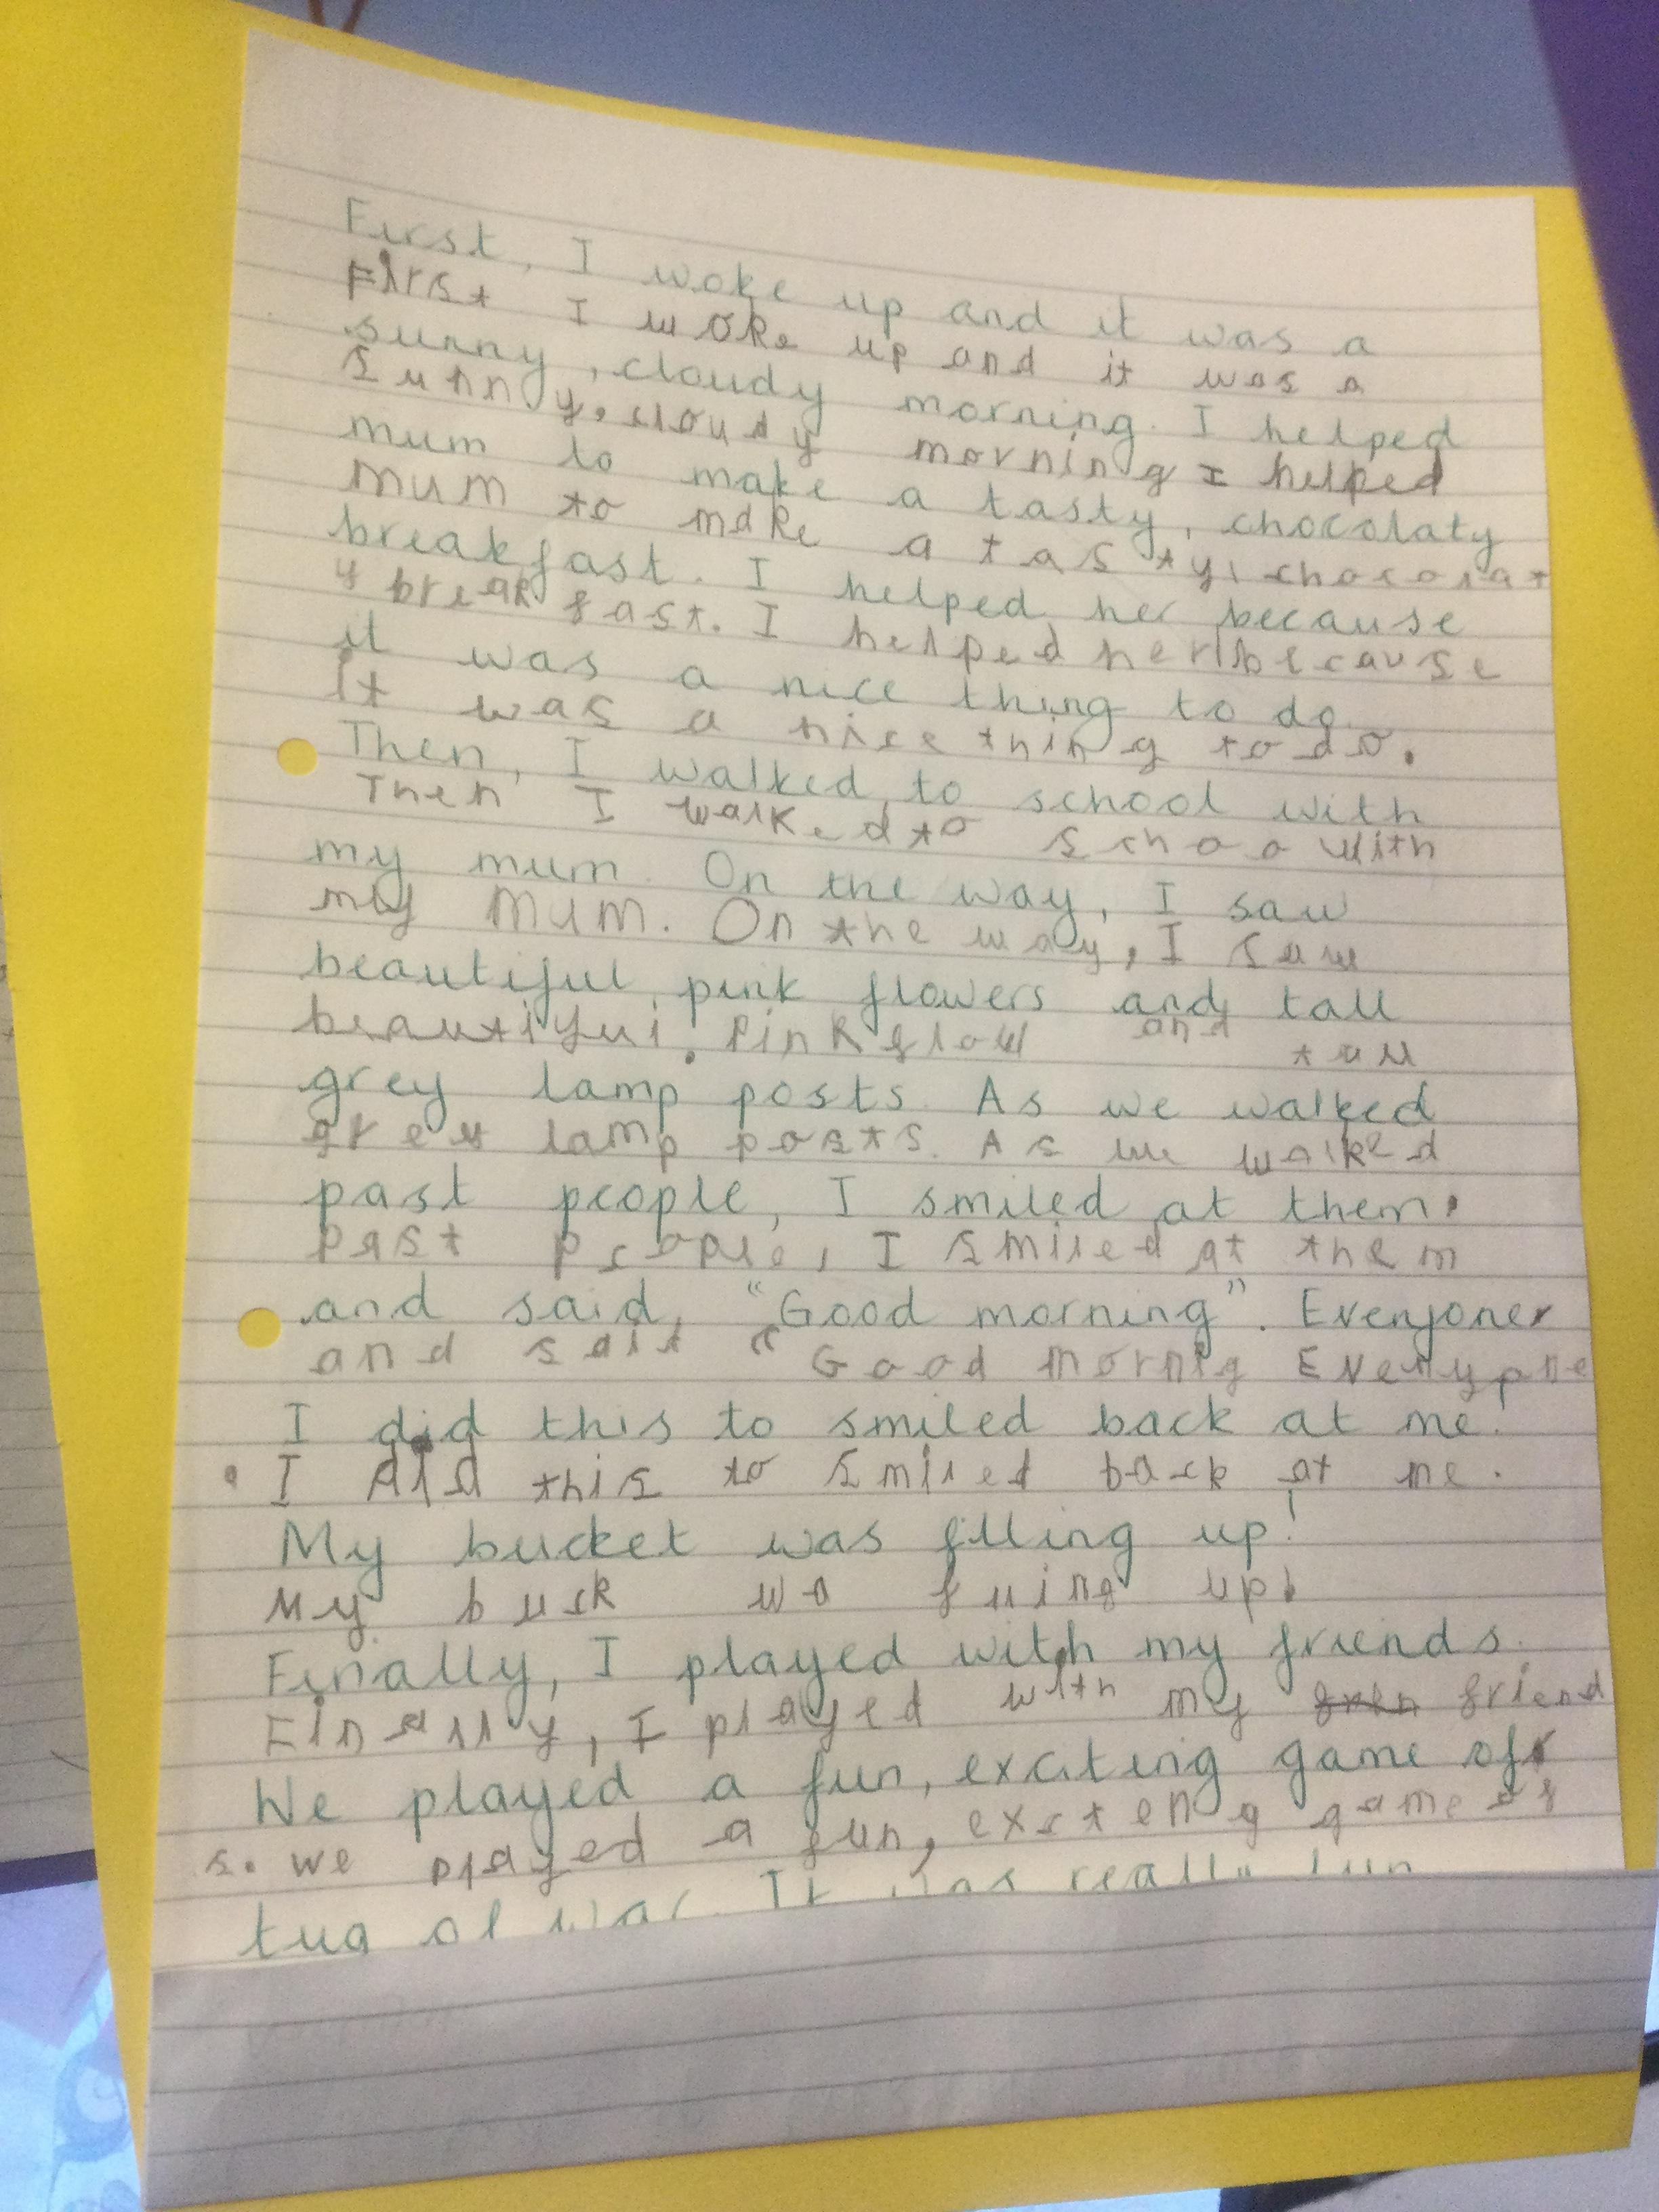 First, I woke up and it was a
First I woke up and it was a
sunny, cloudy morning. I helped
sunny, cloudy morning I helped
mum to make a tasty, chocolaty
mum to make a tasty, chocolat
breakfast. I helped her because
y breakfast. I helped her because
it was a nice thing to do.
it was a nice thing to do.
Then, I walked to school with
Then I walked to schoo with
my mum. On the way, I saw
my mum. On the way, I saw
beautiful, pink flowers and tall
beautiful, Pink flow and tall
grey lamp posts. As we walked
grey lamp posts. As we walked
past people, I smiled at them
past people, I smiled at them
and said, "Good morning". Everyone
and sait " Good mornig Everyone
I did this to smiled back at me!
I did this to smiled back at me.
My bucket was filling up!
My buck wa fuing up!
Finally, I played with my friends.
Finally, I played with my friend
We played a fun, exciting game of
s. we played a fun, excteng game of
tug of war. It was really fun